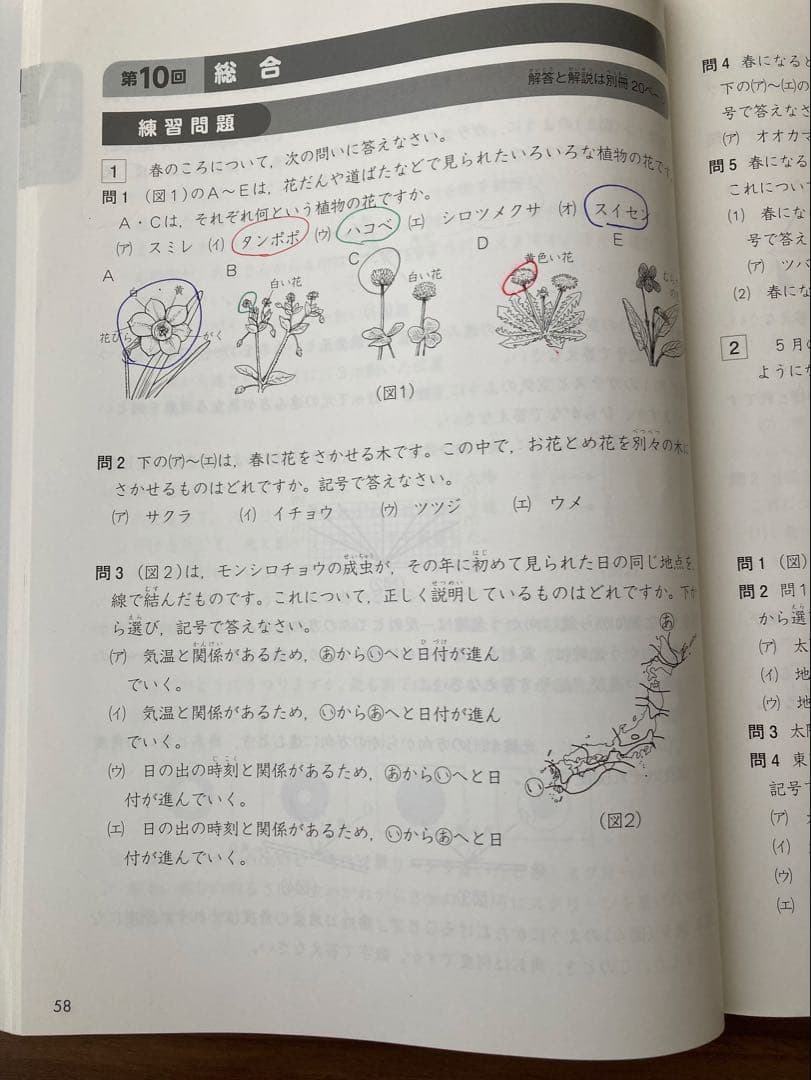 第10回 総合
解答と解説は別冊20ペー
練習問題
1 春のころについて，次の問いに答えなさい。
問1 (図1)のA～Eは，花だんや道ばたなどで見られたいろいろな植物の花です
A・Cは，それぞれ何という植物の花ですか。
(ア) スミレ (イ) タンポポ (ウ) ハコベ (エ) シロツメクサ (オ) スイセン
A B C D E
白 黄 白い花 白い花 黄色い花 むらさき
花びら がく
(図1)
問2 下の(ア)～(エ)は，春に花をさかせる木です。この中で，お花とめ花を別々の木に
さかせるものはどれですか。記号で答えなさい。
(ア) サクラ (イ) イチョウ (ウ) ツツジ (エ) ウメ
問3 (図2)は，モンシロチョウの成虫が，その年に初めて見られた日の同じ地点を
線で結んだものです。これについて，正しく説明しているものはどれですか。下か
ら選び，記号で答えなさい。
(ア) 気温と関係があるため，あからいへと日付が進ん
でいく。
(イ) 気温と関係があるため，いからあへと日付が進ん
でいく。
(ウ) 日の出の時刻と関係があるため，あからいへと日
付が進んでいく。
(エ) 日の出の時刻と関係があるため，いからあへと日
付が進んでいく。
あ
い
(図2)
58
問4 春になると
下の(ア)～(エ)の
号で答えなさ
(ア) オオカマ
問5 春になる
これについ
(1) 春にな
号で答え
(ア) ツバ
(2) 春にな
2 5月の
ようにな
問1 (図)
問2 問1
から選
(ア) 太
(イ) 地
(ウ) 地
問3 太陽
問4 東
記号で
(ア)
(イ)
(ウ)
(エ)